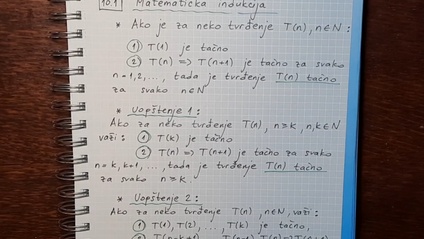 10.1 Matematička indukcija
* Ako je za neko tvrđenje T(n), n∈N:
① T(1) je tačno
② T(n) => T(n+1) je tačno za svako
n=1,2,..., tada je tvrđenje T(n) tačno
za svako n∈N
* Uopštenje 1:
Ako za neko tvrđenje T(n), n≥k, n,k∈N
važi: ① T(k) je tačno
② T(n) => T(n+1) je tačno za svako
n=k,k+1,..., tada je tvrđenje T(n) tačno
za svako n≥k.
* Uopštenje 2:
Ako za neko tvrđenje T(n), n∈N, važi:
① T(1), T(2), ..., T(k) je tačno,